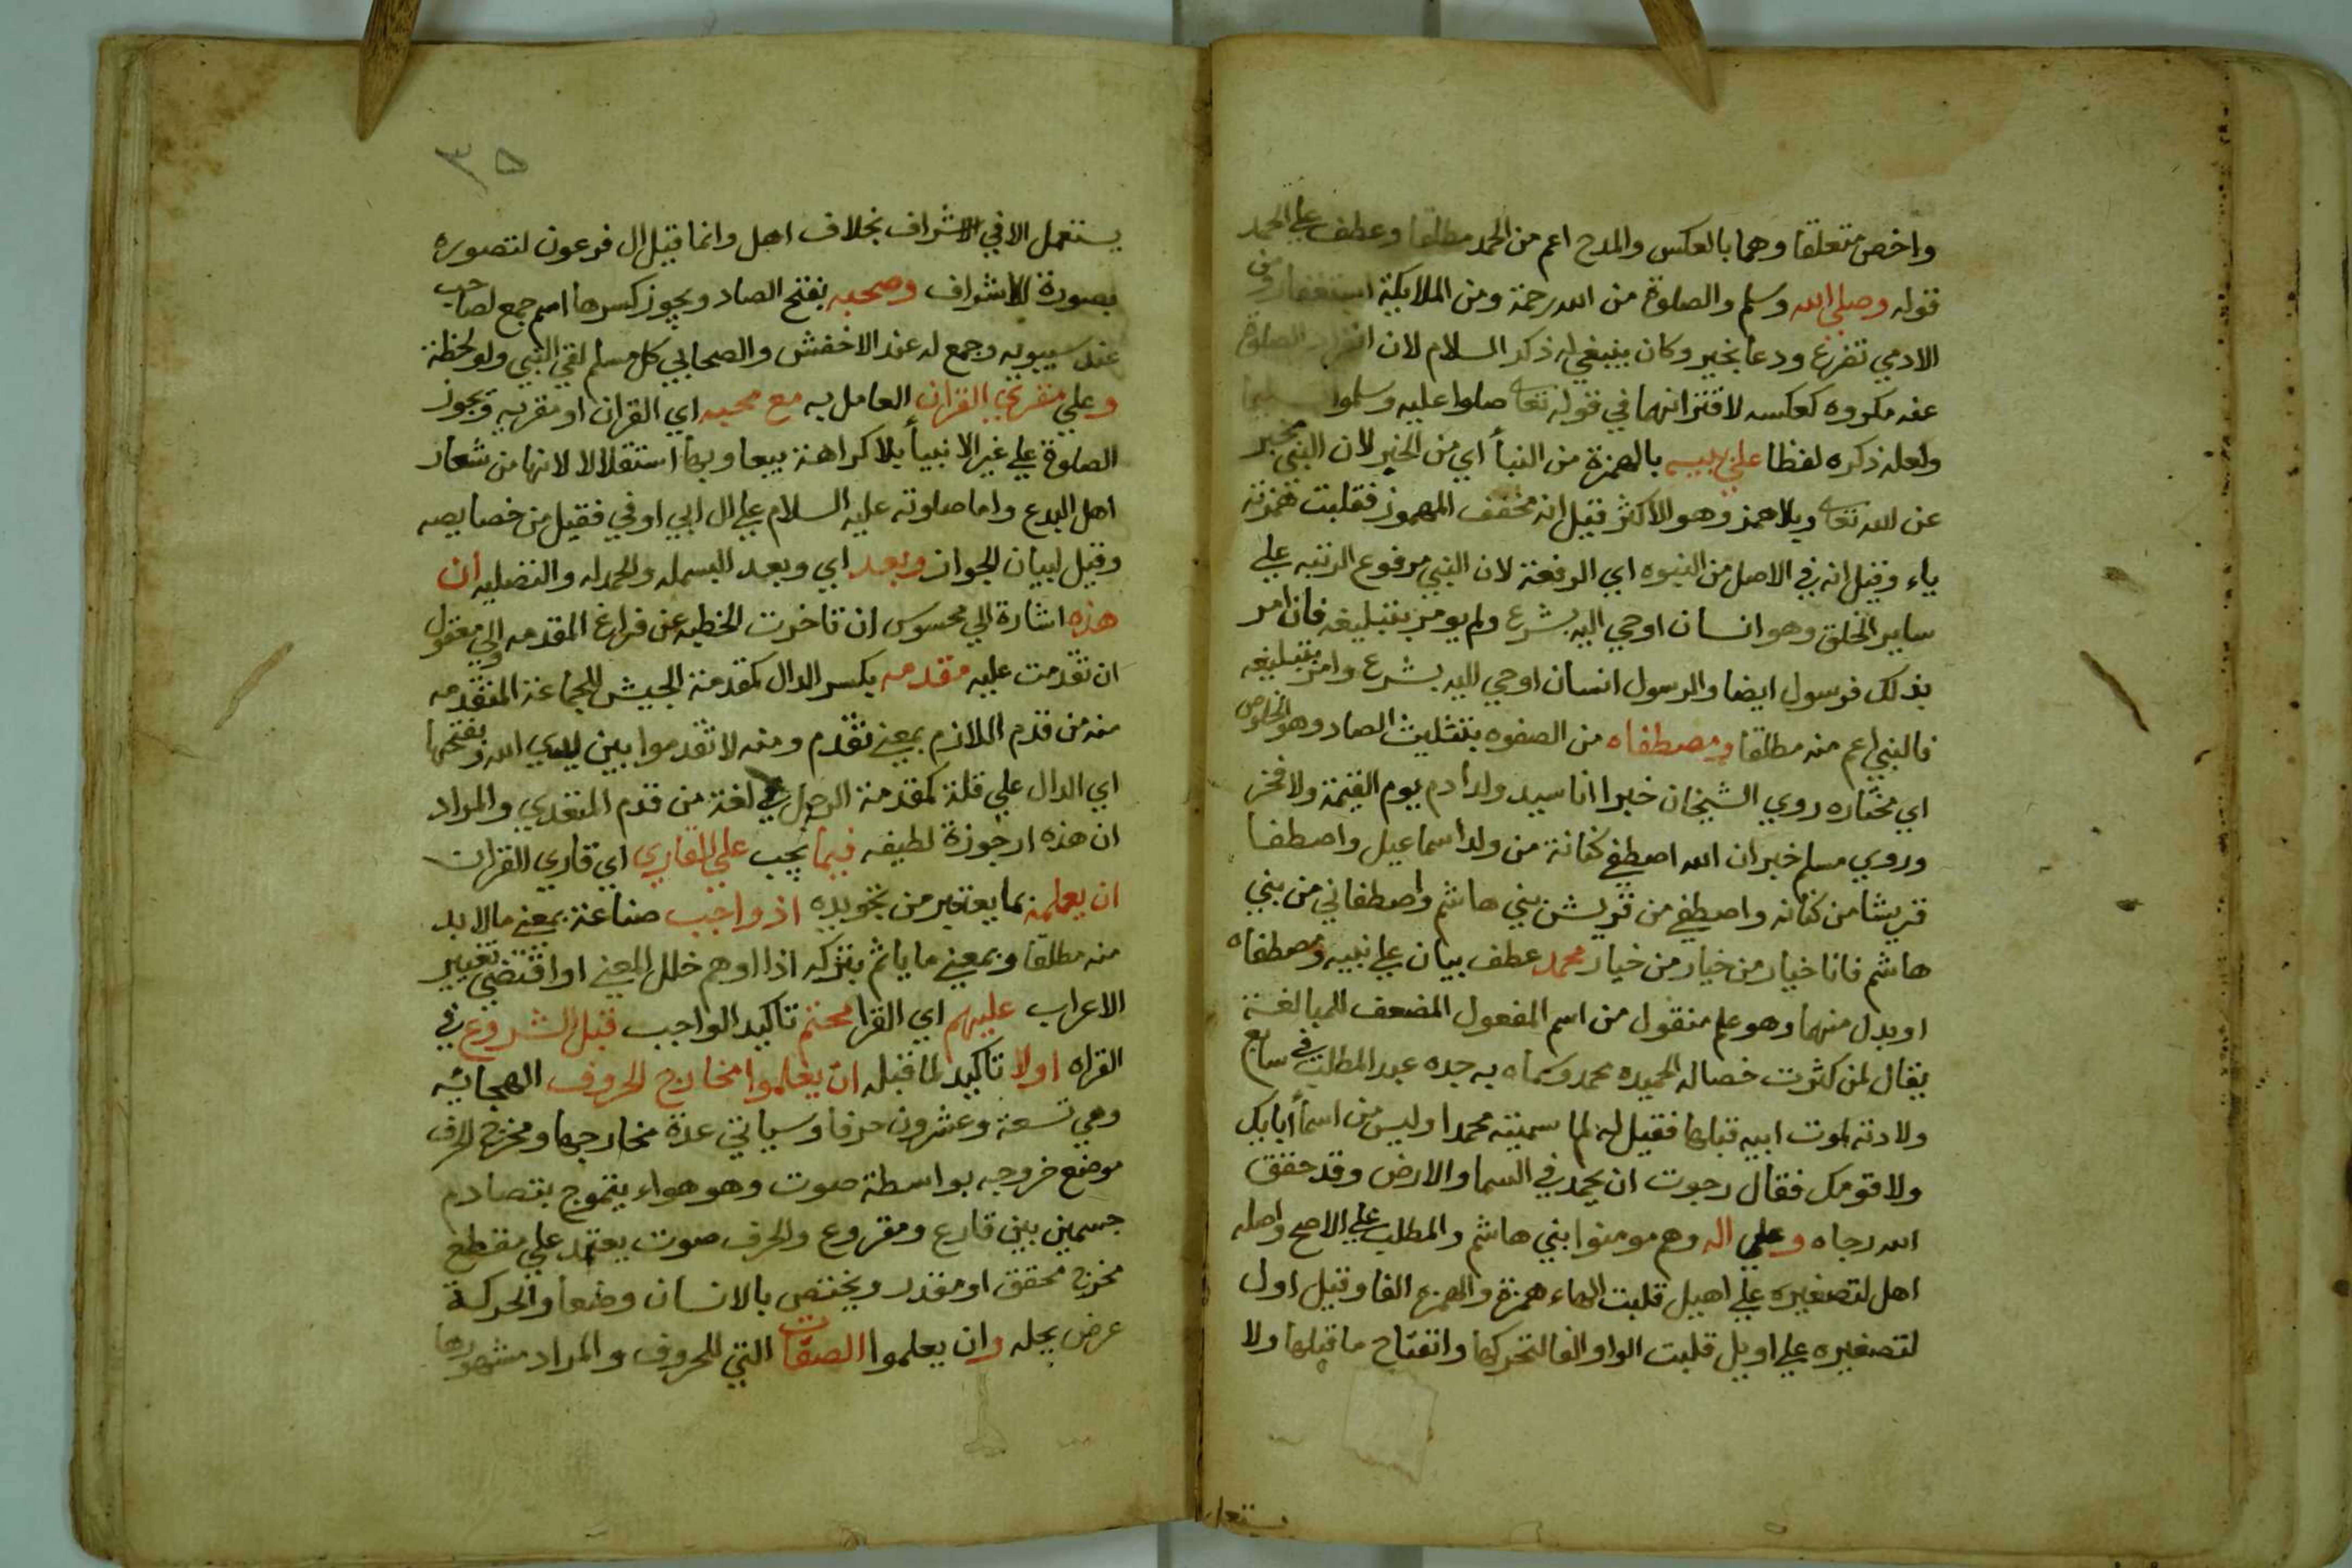 واخص متعلقا وهما بالعكس والمدح اعم من الحمد مطلقا وعطف علي الحمد
قوله وصلي الله وسلم والصلوة من الله رحمة ومن الملايكة استغفار ومن
الادمي تضرع ودعا بخير وكان ينبغي له ذكر السلام لان افراد الصلوة
عنه مكروه كعكسه لاقترانهما في قوله تعالى صلوا عليه وسلموا تسليما
ولعله ذكره لفظا علي نبيه بالهمزة من النبأ اي من الخبر لان النبي مخبر
عن الله تعالى وبلا همز وهو الاكثر قيل انه مخفف المهموز فقلبت همزته
ياء وقيل انه في الاصل من النبوه اي الرفعة لان النبي مرفوع الرتبه علي
ساير الخلق وهو انسان اوحي اليه بشرع ولم يومر بتبليغه فان امر
بذلك فرسول ايضا والرسول انسان اوحي اليه بشرع وامر بتبليغه
فالنبي اعم منه مطلقا ومصطفاه من الصفوه بتثليث الصاد وهو الخلوص
اي مختاره روي الشيخان خبر انا سيد ولد ادم يوم القيمة ولا فخر
وروي مسلم خبر ان الله اصطفي كنانة من ولد اسماعيل واصطفا
قريشا من كنانه واصطفي من قريش بني هاشم واصطفاني من بني
هاشم فانا خيار من خيار من خيار محمد عطف بيان علي نبيه ومصطفاه
او بدل منهما وهو علم منقول من اسم المفعول المضعف للمبالغة
يقال لمن كثرت خصاله الحميده محمد وسماه به جده عبد المطلب في سابع
ولادته لموت ابيه قبلها فقيل له لما سميته محمدا وليس من اسمأ ابايك
ولا قومك فقال رجوت ان يحمد في السما والارض وقد حقق
الله رجاه وعلي اله وهم مومنوا بني هاشم والمطلب علي الاصح واصله
اهل لتصغيره علي اهيل قلبت الهاء همزة والهمزة الفا وقيل اول
لتصغيره علي اويل قلبت الواو الفا لتحركها وانفتاح ما قبلها ولا
يستعمل
٣٥
يستعمل الا في الاشراف بخلاف اهل وانما قيل ال فرعون لتصوره
بصورة الاشراف وصحبه بفتح الصاد ويجوز كسرها اسم جمع لصاحب
عند سيبويه وجمع له عند الاخفش والصحابي كل مسلم لقي النبي ولو لحظة
وعلي مقري القران العامل به مع محبه اي القران او مقريه وتجوز
الصلوة علي غير الانبيأ بلا كراهة تبعا وبها استقلالا لانها من شعار
اهل البدع واما صلوته عليه السلام علي ال ابي اوفي فقيل من خصايصه
وقيل لبيان الجواز وبعد اي وبعد البسمله والحمدله والتصليه ان
هذه اشارة الي محسوس ان تاخرت الخطبه عن فراغ المقدمه والي معقول
ان تقدمت عليه مقدمه بكسر الدال كمقدمة الجيش للجماعة المتقدمه
منه من قدم اللازم بمعني تقدم ومنه لا تقدموا بين يدي الله وبفتحها
اي الدال علي قلة كمقدمة الرحل في لغة من قدم المتعدي والمراد
ان هذه ارجوزة لطيفه فيما يجب علي القاري اي قاري القران
ان يعلمه مما يعتبر من تجويده اذ واجب صناعة بمعني ما لا بد
منه مطلقا وبمعني ما ياثم بتركه اذا اوهم خلل المعني او اقتضي تغيير
الاعراب عليهم اي القرا محتم تاكيد الواجب قبل الشروع في
القراه اولا تاكيد لما قبله ان يعلموا مخارج الحروف الهجائيه
وهي تسعة وعشرون حرفا وسياتي عدة مخارجها ومخرج الحرف
موضع خروجه بواسطة صوت وهو هواء يتموج بتصادم
جسمين بين قارع ومقروع والحرف صوت يعتمد علي مقطع
مخرج محقق او مقدر ويختص بالانسان وضعا والحركة
عرض يحله وان يعلموا الصفات التي للحروف والمراد مشهورها